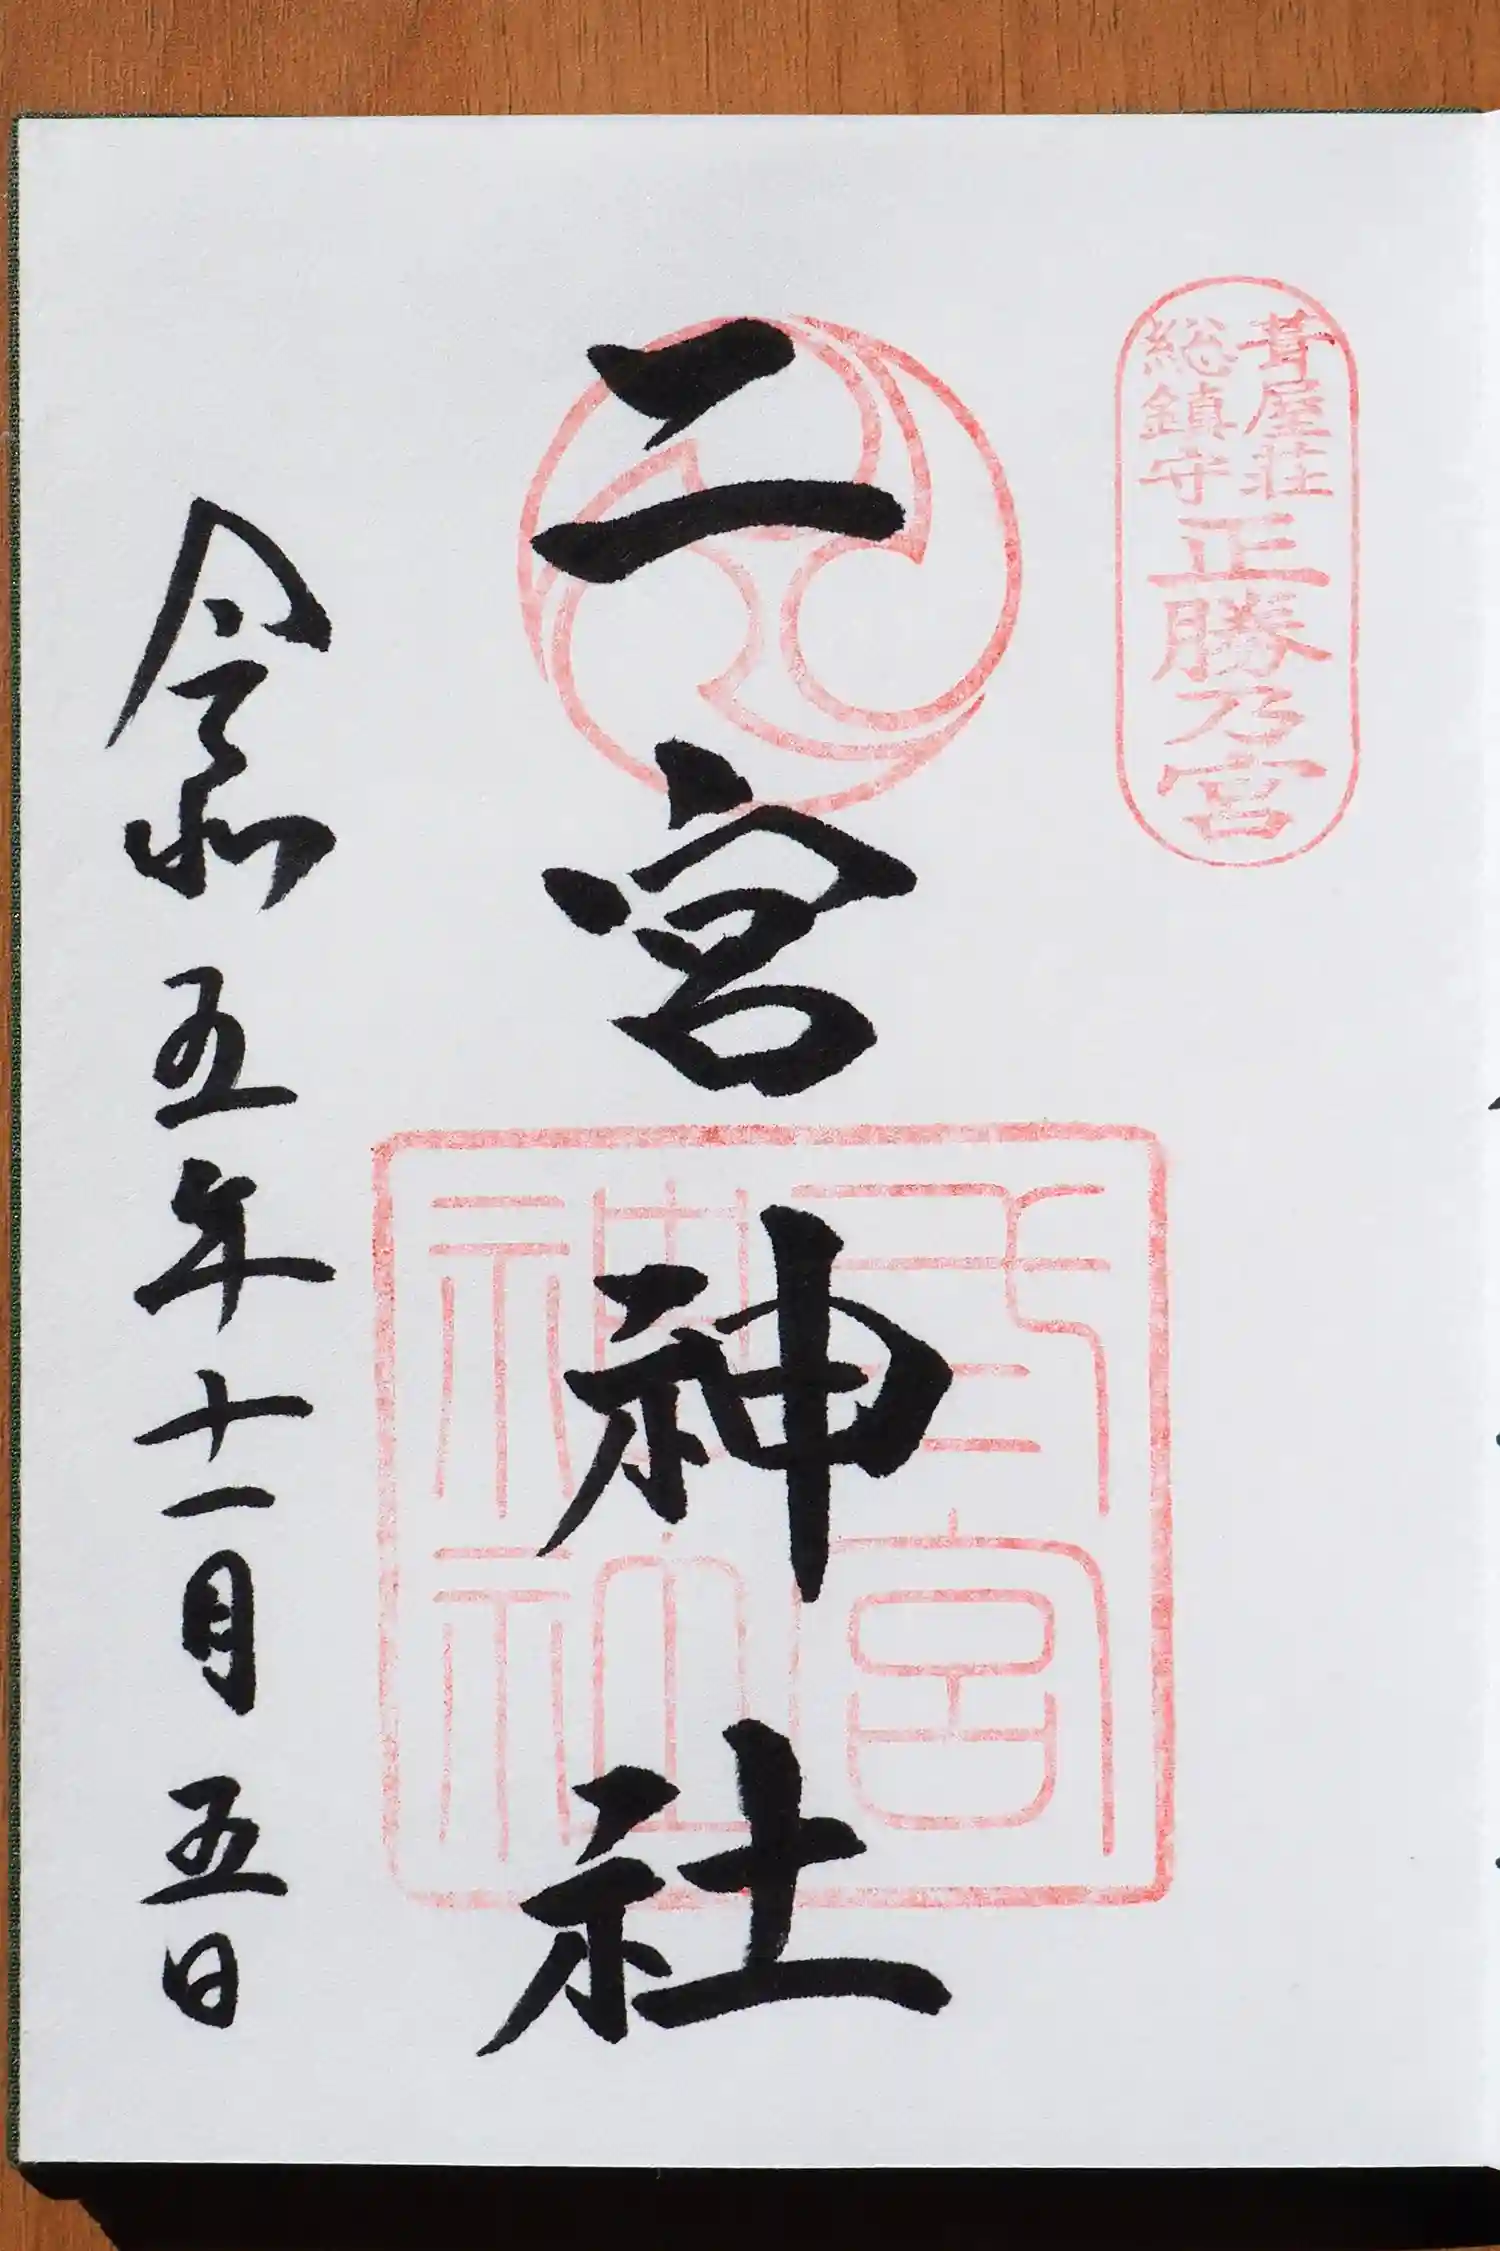 青屋荘
総鎮守
正勝乃宮
二宮神社
弐宮
神社
令和五年十一月五日